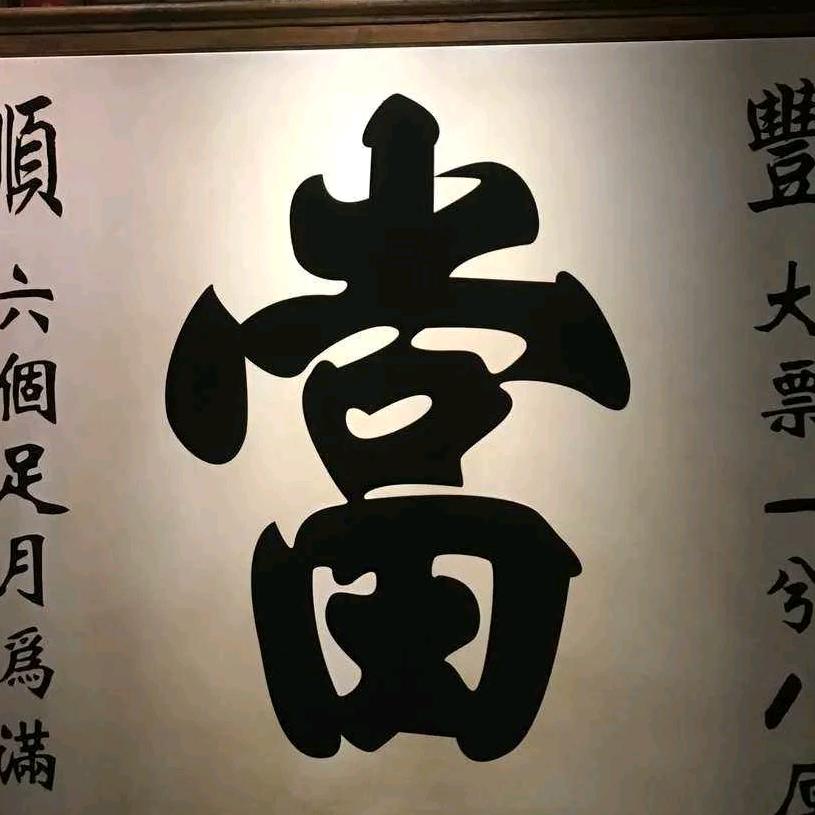 豐
大票一分
當
順
六個足月為滿